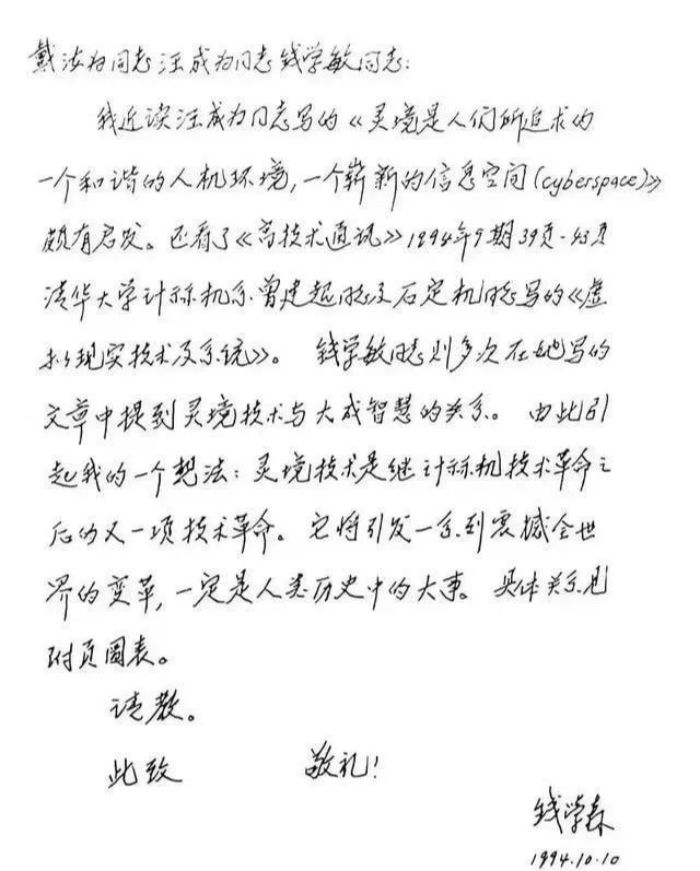 戴汝为同志汪成为同志钱学敏同志:
我近读汪成为同志写的《灵境是人们所追求的
一个和谐的人机环境,一个崭新的信息空间(cyberspace)》
颇有启发。还看了《高技术通讯》1994年9期39页-43页
清华大学计算机系曾建超同志及石定机同志写的《虚
拟现实技术及系统》。钱学敏同志则多次在她写的
文章中提到灵境技术与大成智慧的关系。由此引
起我的一个想法:灵境技术是继计算机技术革命之
后的又一项技术革命。它将引发一系列震撼全世
界的变革,一定是人类历史中的大事。具体关系见
附页圖表。
请教。
此致 敬礼!
钱学森
1994.10.10